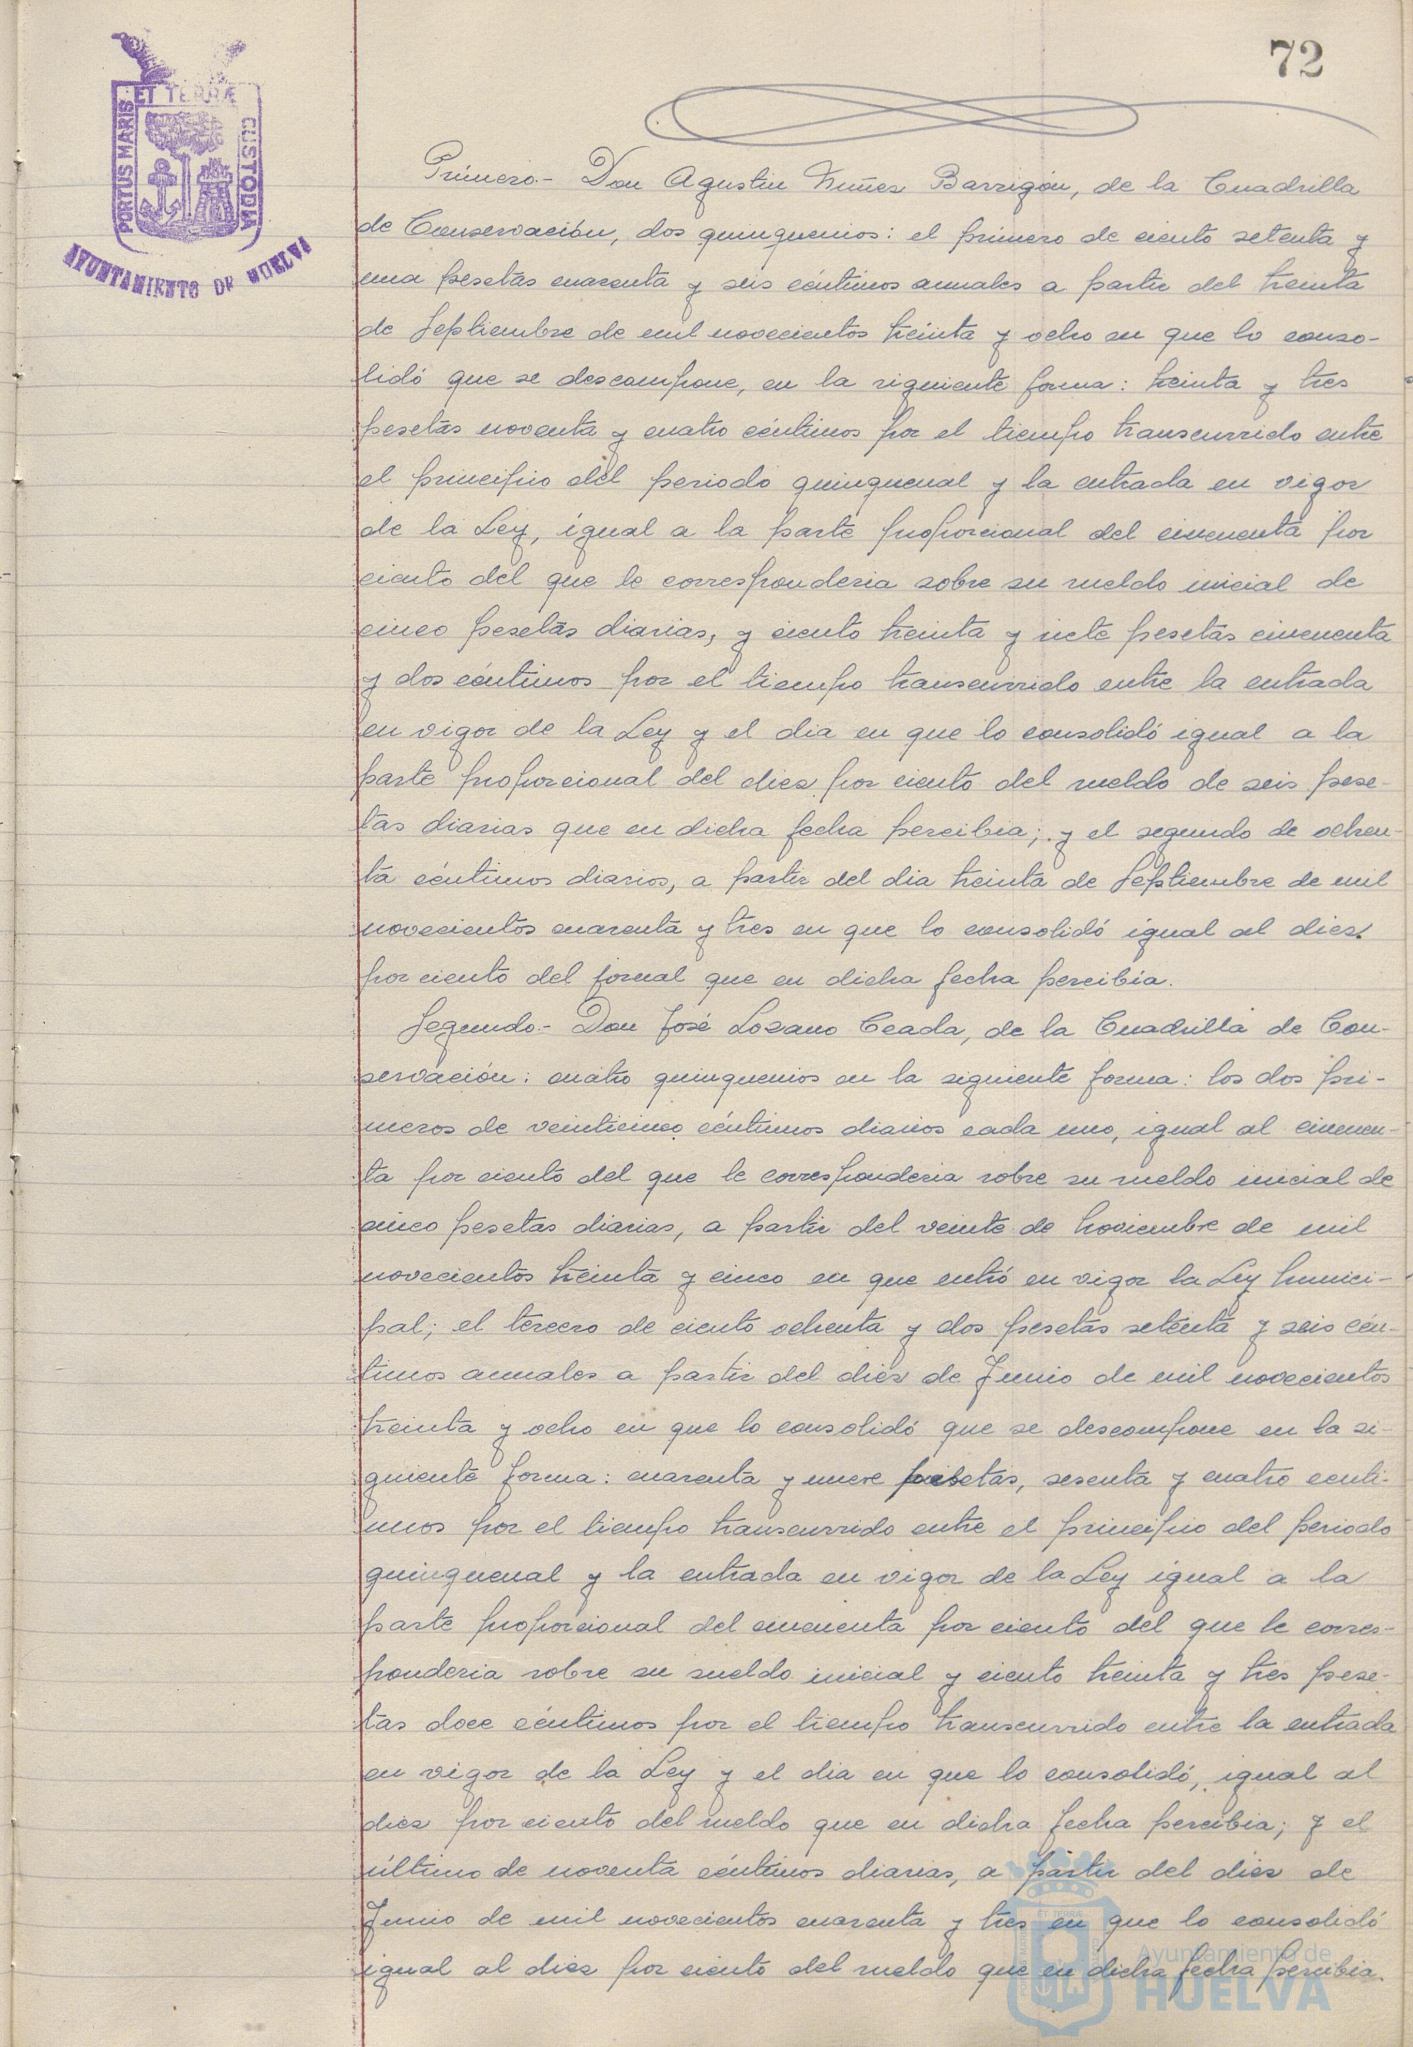 72
PORTUS MARIS
ET TERRÆ
CUSTODIA
AYUNTAMIENTO DE HUELVA
Primero.- Don Agustin Nuñez Barrigón, de la Cuadrilla
de Conservación, dos quinquenios: el primero de ciento setenta y
una pesetas cuarenta y seis céntimos anuales a partir del treinta
de Septiembre de mil novecientos treinta y ocho en que lo conso-
lidó que se descompone, en la siguiente forma: treinta y tres
pesetas noventa y cuatro céntimos por el tiempo transcurrido entre
el principio del periodo quinquenal y la entrada en vigor
de la Ley, igual a la parte proporcional del cincuenta por
ciento del que le corresponderia sobre su sueldo inicial de
cinco pesetas diarias, y ciento treinta y siete pesetas cincuenta
y dos céntimos por el tiempo transcurrido entre la entrada
en vigor de la Ley y el dia en que lo consolidó igual a la
parte proporcional del diez por ciento del sueldo de seis pese-
tas diarias que en dicha fecha percibia; y el segundo de ochen-
ta céntimos diarios, a partir del dia treinta de Septiembre de mil
novecientos cuarenta y tres en que lo consolidó igual al diez
por ciento del jornal que en dicha fecha percibia.
Segundo.- Don José Lozano Ceada, de la Cuadrilla de Con-
servación: cuatro quinquenios en la siguiente forma: los dos pri-
meros de veinticinco céntimos diarios cada uno, igual al cincuen-
ta por ciento del que le corresponderia sobre su sueldo inicial de
cinco pesetas diarias, a partir del veinte de Noviembre de mil
novecientos treinta y cinco en que entró en vigor la Ley Munici-
pal; el tercero de ciento ochenta y dos pesetas setenta y seis cén-
timos anuales a partir del diez de Junio de mil novecientos
treinta y ocho en que lo consolidó que se descompone en la si-
guiente forma: cuarenta y nueve pesetas, sesenta y cuatro centi-
mos por el tiempo transcurrido entre el principio del periodo
quinquenal y la entrada en vigor de la Ley igual a la
parte proporcional del cincuenta por ciento del que le corres-
ponderia sobre su sueldo inicial y ciento treinta y tres pese-
tas doce céntimos por el tiempo transcurrido entre la entrada
en vigor de la Ley y el dia en que lo consolidó, igual al
diez por ciento del sueldo que en dicha fecha percibia; y el
último de noventa céntimos diarias, a partir del diez de
Junio de mil novecientos cuarenta y tres en que lo consolidó
igual al diez por ciento del sueldo que en dicha fecha percibia.
Ayuntamiento de
HUELVA